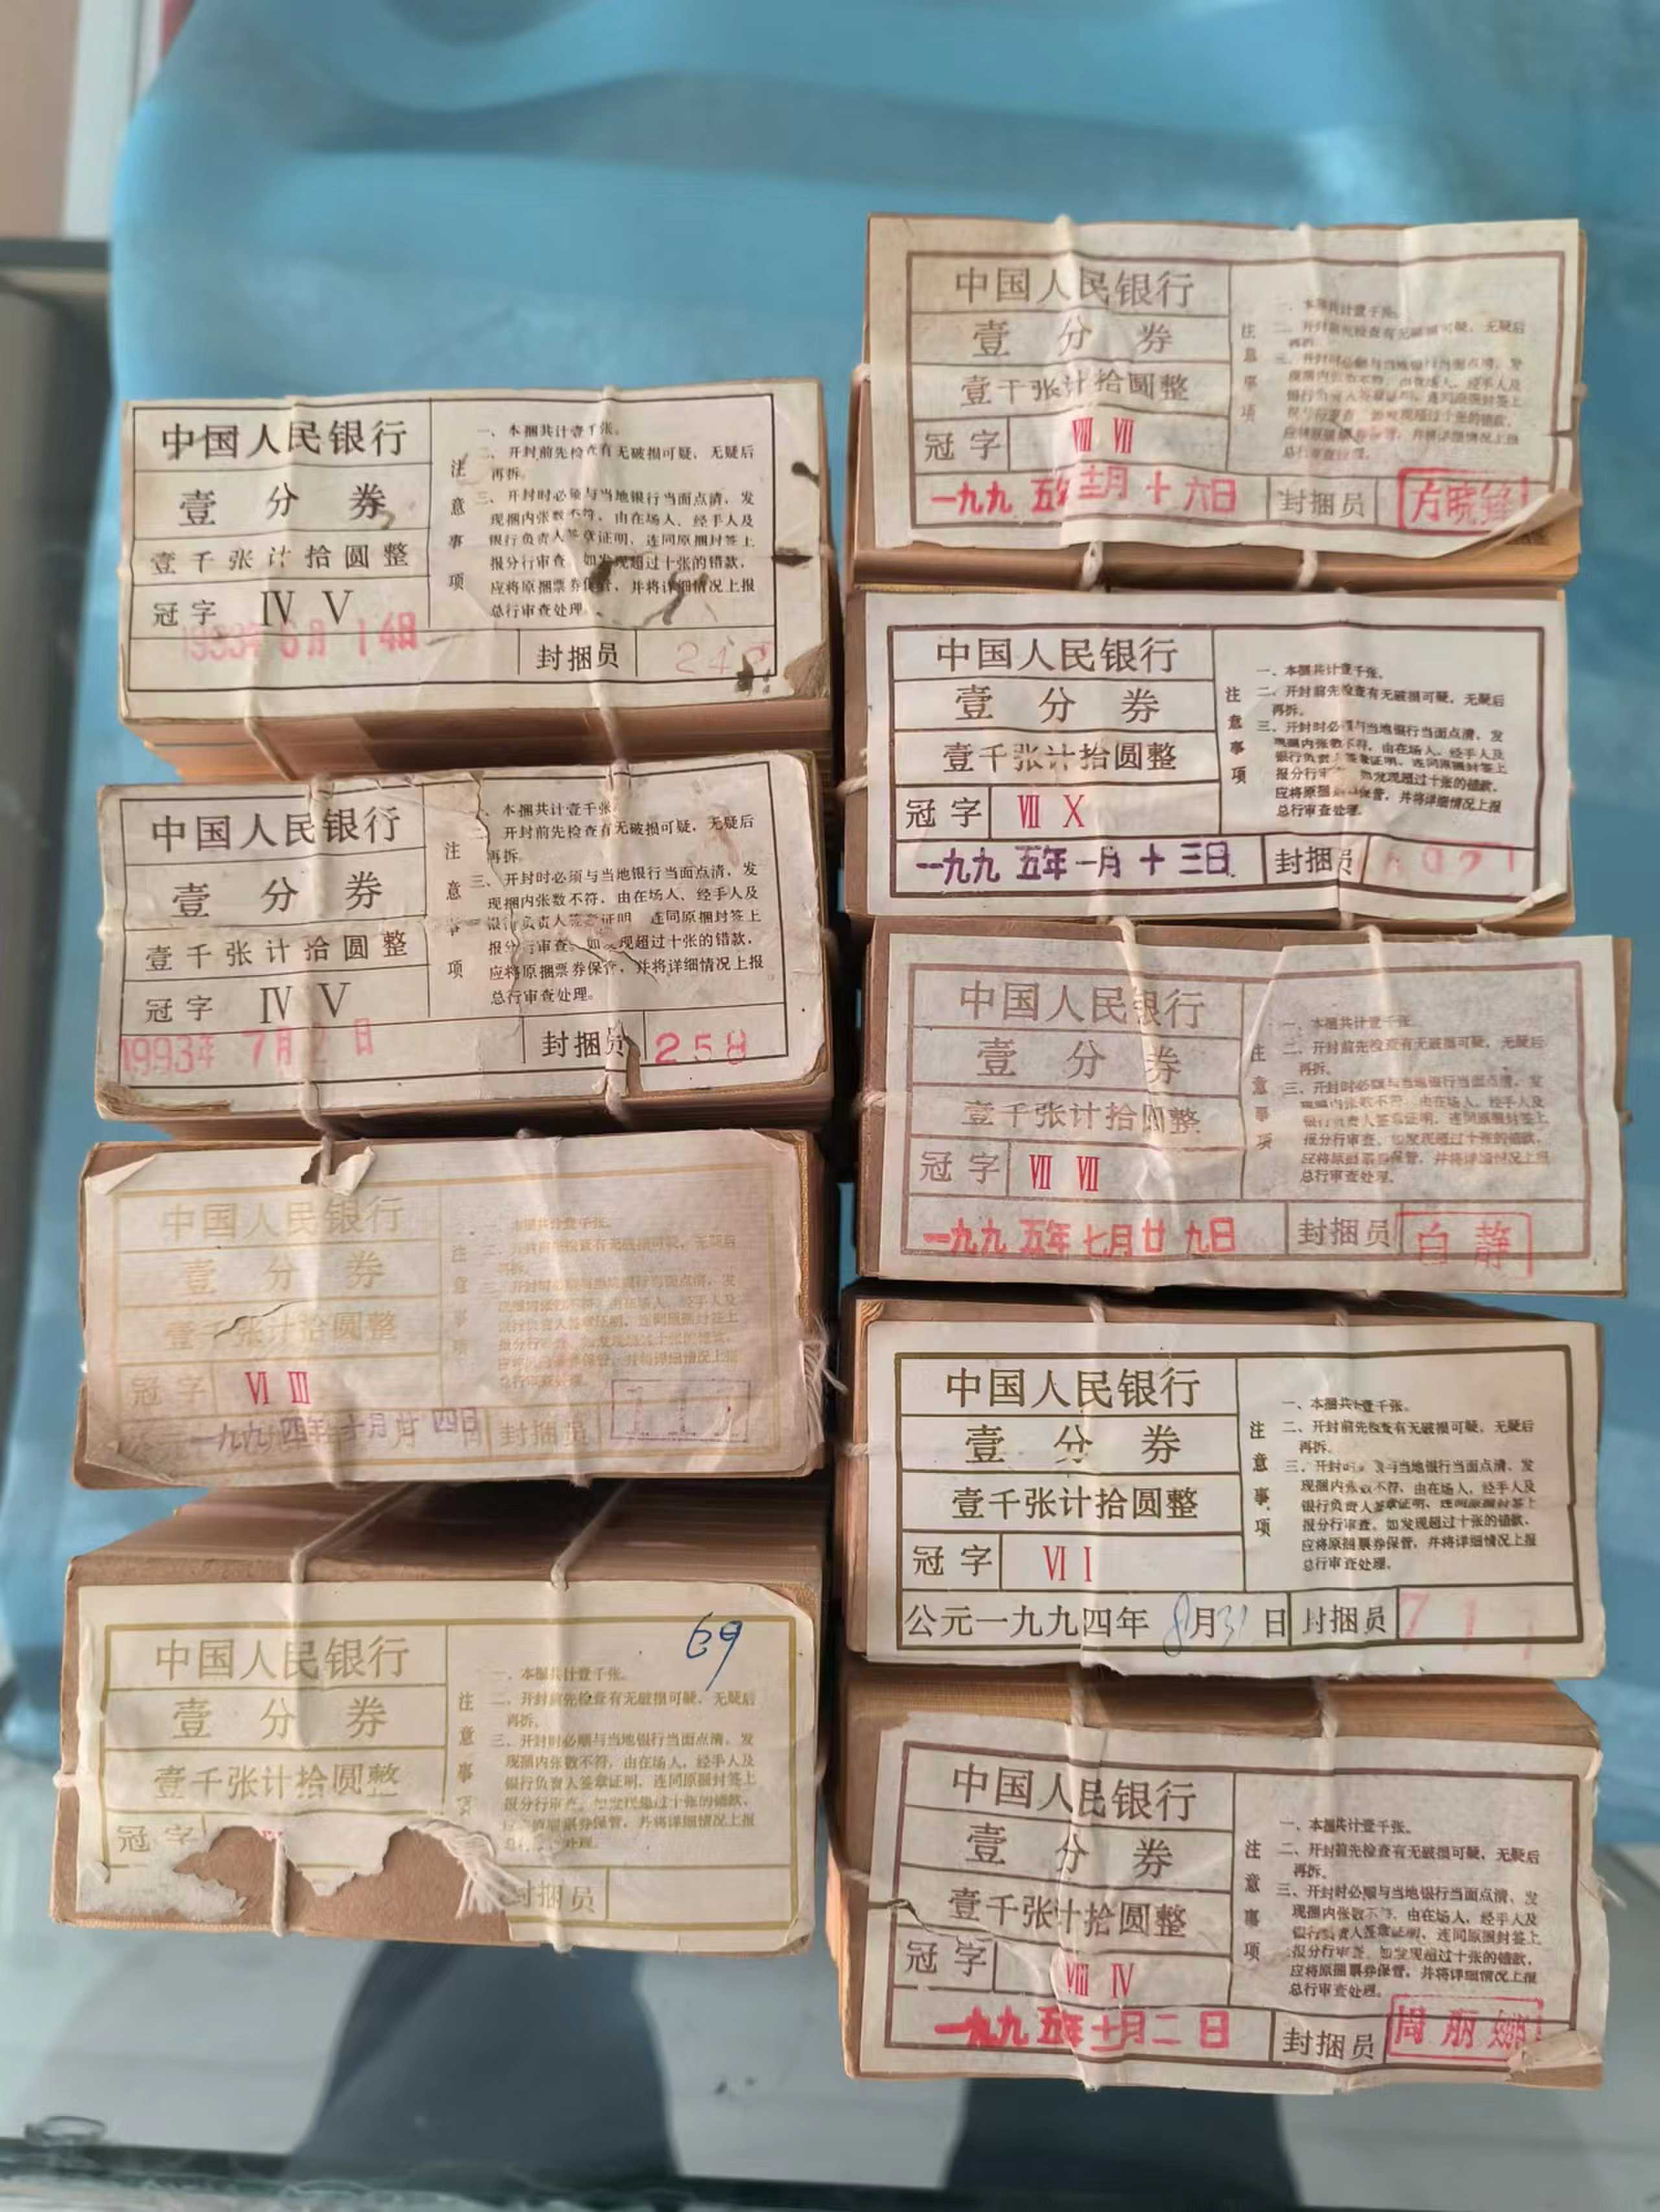 中国人民银行
壹分券
壹千张计拾圆整
冠字 Ⅳ Ⅴ
1993年6月14日
封捆员
注意事项
一、本捆共计壹千张。
二、开封前先检查有无破损可疑，无疑后
再拆。
三、开封时必须与当地银行当面点清，发
现捆内张数不符，由在场人、经手人及
银行负责人签章证明，连同原捆封签上
报分行审查，如发现超过十张的错款，
应将原捆票券保管，并将详细情况上报
总行审查处理。
中国人民银行
壹分券
壹千张计拾圆整
冠字 Ⅳ Ⅴ
1993年7月2日
封捆员 258
注意事项
本捆共计壹千张
开封前先检查有无破损可疑，无疑后
再拆。
三、开封时必须与当地银行当面点清，发
现捆内张数不符，由在场人、经手人及
银行负责人签章证明 连同原捆封签上
报分行审查。如发现超过十张的错款，
应将原捆票券保管，并将详细情况上报
总行审查处理。
中国人民银行
壹分券
壹千张计拾圆整
冠字 Ⅵ Ⅲ
一九九四年十月廿四日
封捆员 117
注意事项
本捆共计壹千张。
二、开封前先检查有无破损可疑，无疑后
再拆。
三、开封时必须与当地银行当面点清，发
现捆内张数不符，由在场人、经手人及
银行负责人签章证明，连同原捆封签上
报分行审查。如发现超过十张的错款，
应将原捆票券保管，并将详细情况上报
总行审查处理。
69
中国人民银行
壹分券
壹千张计拾圆整
冠字
封捆员
注意事项
一、本捆共计壹千张。
二、开封前先检查有无破损可疑，无疑后
再拆。
三、开封时必须与当地银行当面点清、发
现捆内张数不符，由在场人、经手人及
银行负责人签章证明、连同原捆封签上
报分行审查。如发现超过十张的错款、
应将原捆票券保管，并将详细情况上报
总行 处理。
中国人民银行
壹分券
壹千张计拾圆整
冠字 Ⅷ Ⅶ
一九九五年十二月十六日
封捆员 方晓锋
注意事项
一、本捆共计壹千张。
二、开封前先检查有无破损可疑，无疑后
再拆。
三、开封时必须与当地银行当面点清，发
现捆内张数不符，由在场人、经手人及
银行负责人签章证明，连同原捆封签上
报分行审查。如发现超过十张的错款，
应将原捆票券保管，并将详细情况上报
总行审查处理。
中国人民银行
壹分券
壹千张计拾圆整
冠字 Ⅶ Ⅹ
一九九五年一月十三日
封捆员
注意事项
一、本捆共计壹千张。
二、开封前先检查有无破损可疑，无疑后
再拆。
三、开封时必须与当地银行当面点清、发
现捆内张数不符，由在场人、经手人及
银行负责人签章证明、连同原捆封签上
报分行 如发现超过十张的错款，
应将原捆 保管，并将详细情况上报
总行审查处理。
中国人民银行
壹分券
壹千张计拾圆整
冠字 Ⅶ Ⅶ
一九九五年七月廿九日
封捆员 白静
注意事项
一、本捆共计壹千张
二、开封前先检查有无破损可疑，无疑后
再拆。
三、开封时必须与当地银行当面点清、发
现捆内张数不符、由在场人、经手人及
银行负责人签章证明、连同原捆封签上
报分行审查。如发现超过十张的错款，
应将原捆票券保管，并将详细情况上报
总行审查处理。
中国人民银行
壹分券
壹千张计拾圆整
冠字 Ⅵ Ⅰ
公元一九九四年8月31日
封捆员
注意事项
一、本捆共计壹千张。
二、开封前先检查有无破损可疑，无疑后
再拆。
三、开封时 与当地银行当面点清、发
现捆内张数不符，由在场人、经手人及
银行负责人签章证明、连同原捆封签上
报分行审查。如发现超过十张的错款，
应将原捆票券保管，并将详细情况上报
总行审查处理。
中国人民银行
壹分券
壹千张计拾圆整
冠字 Ⅷ Ⅳ
一九九五年十一月二日
封捆员 周丽
注意事项
一、本捆共计壹千张。
二、开封前先检查有无破损可疑，无疑后
再拆。
三、开封时必须与当地银行当面点清、发
现捆内张数不符、由在场人，经手人及
银行负责人签章证明、连同原捆封签上
报分行审查。如发现超过十张的错款，
应将原捆票券保管，并将详细情况上报
总行审查处理。